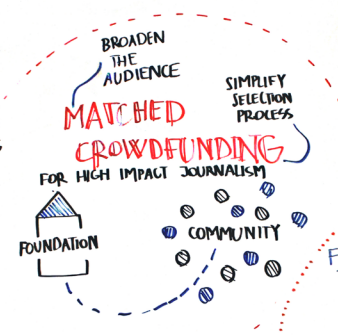 BROADEN
THE
AUDIENCE
SIMPLIFY
SELECTION
PROCESS
MATCHED
CROWDFUNDING
FOR HIGH IMPACT JOURNALISM
FOUNDATION
COMMUNITY
F